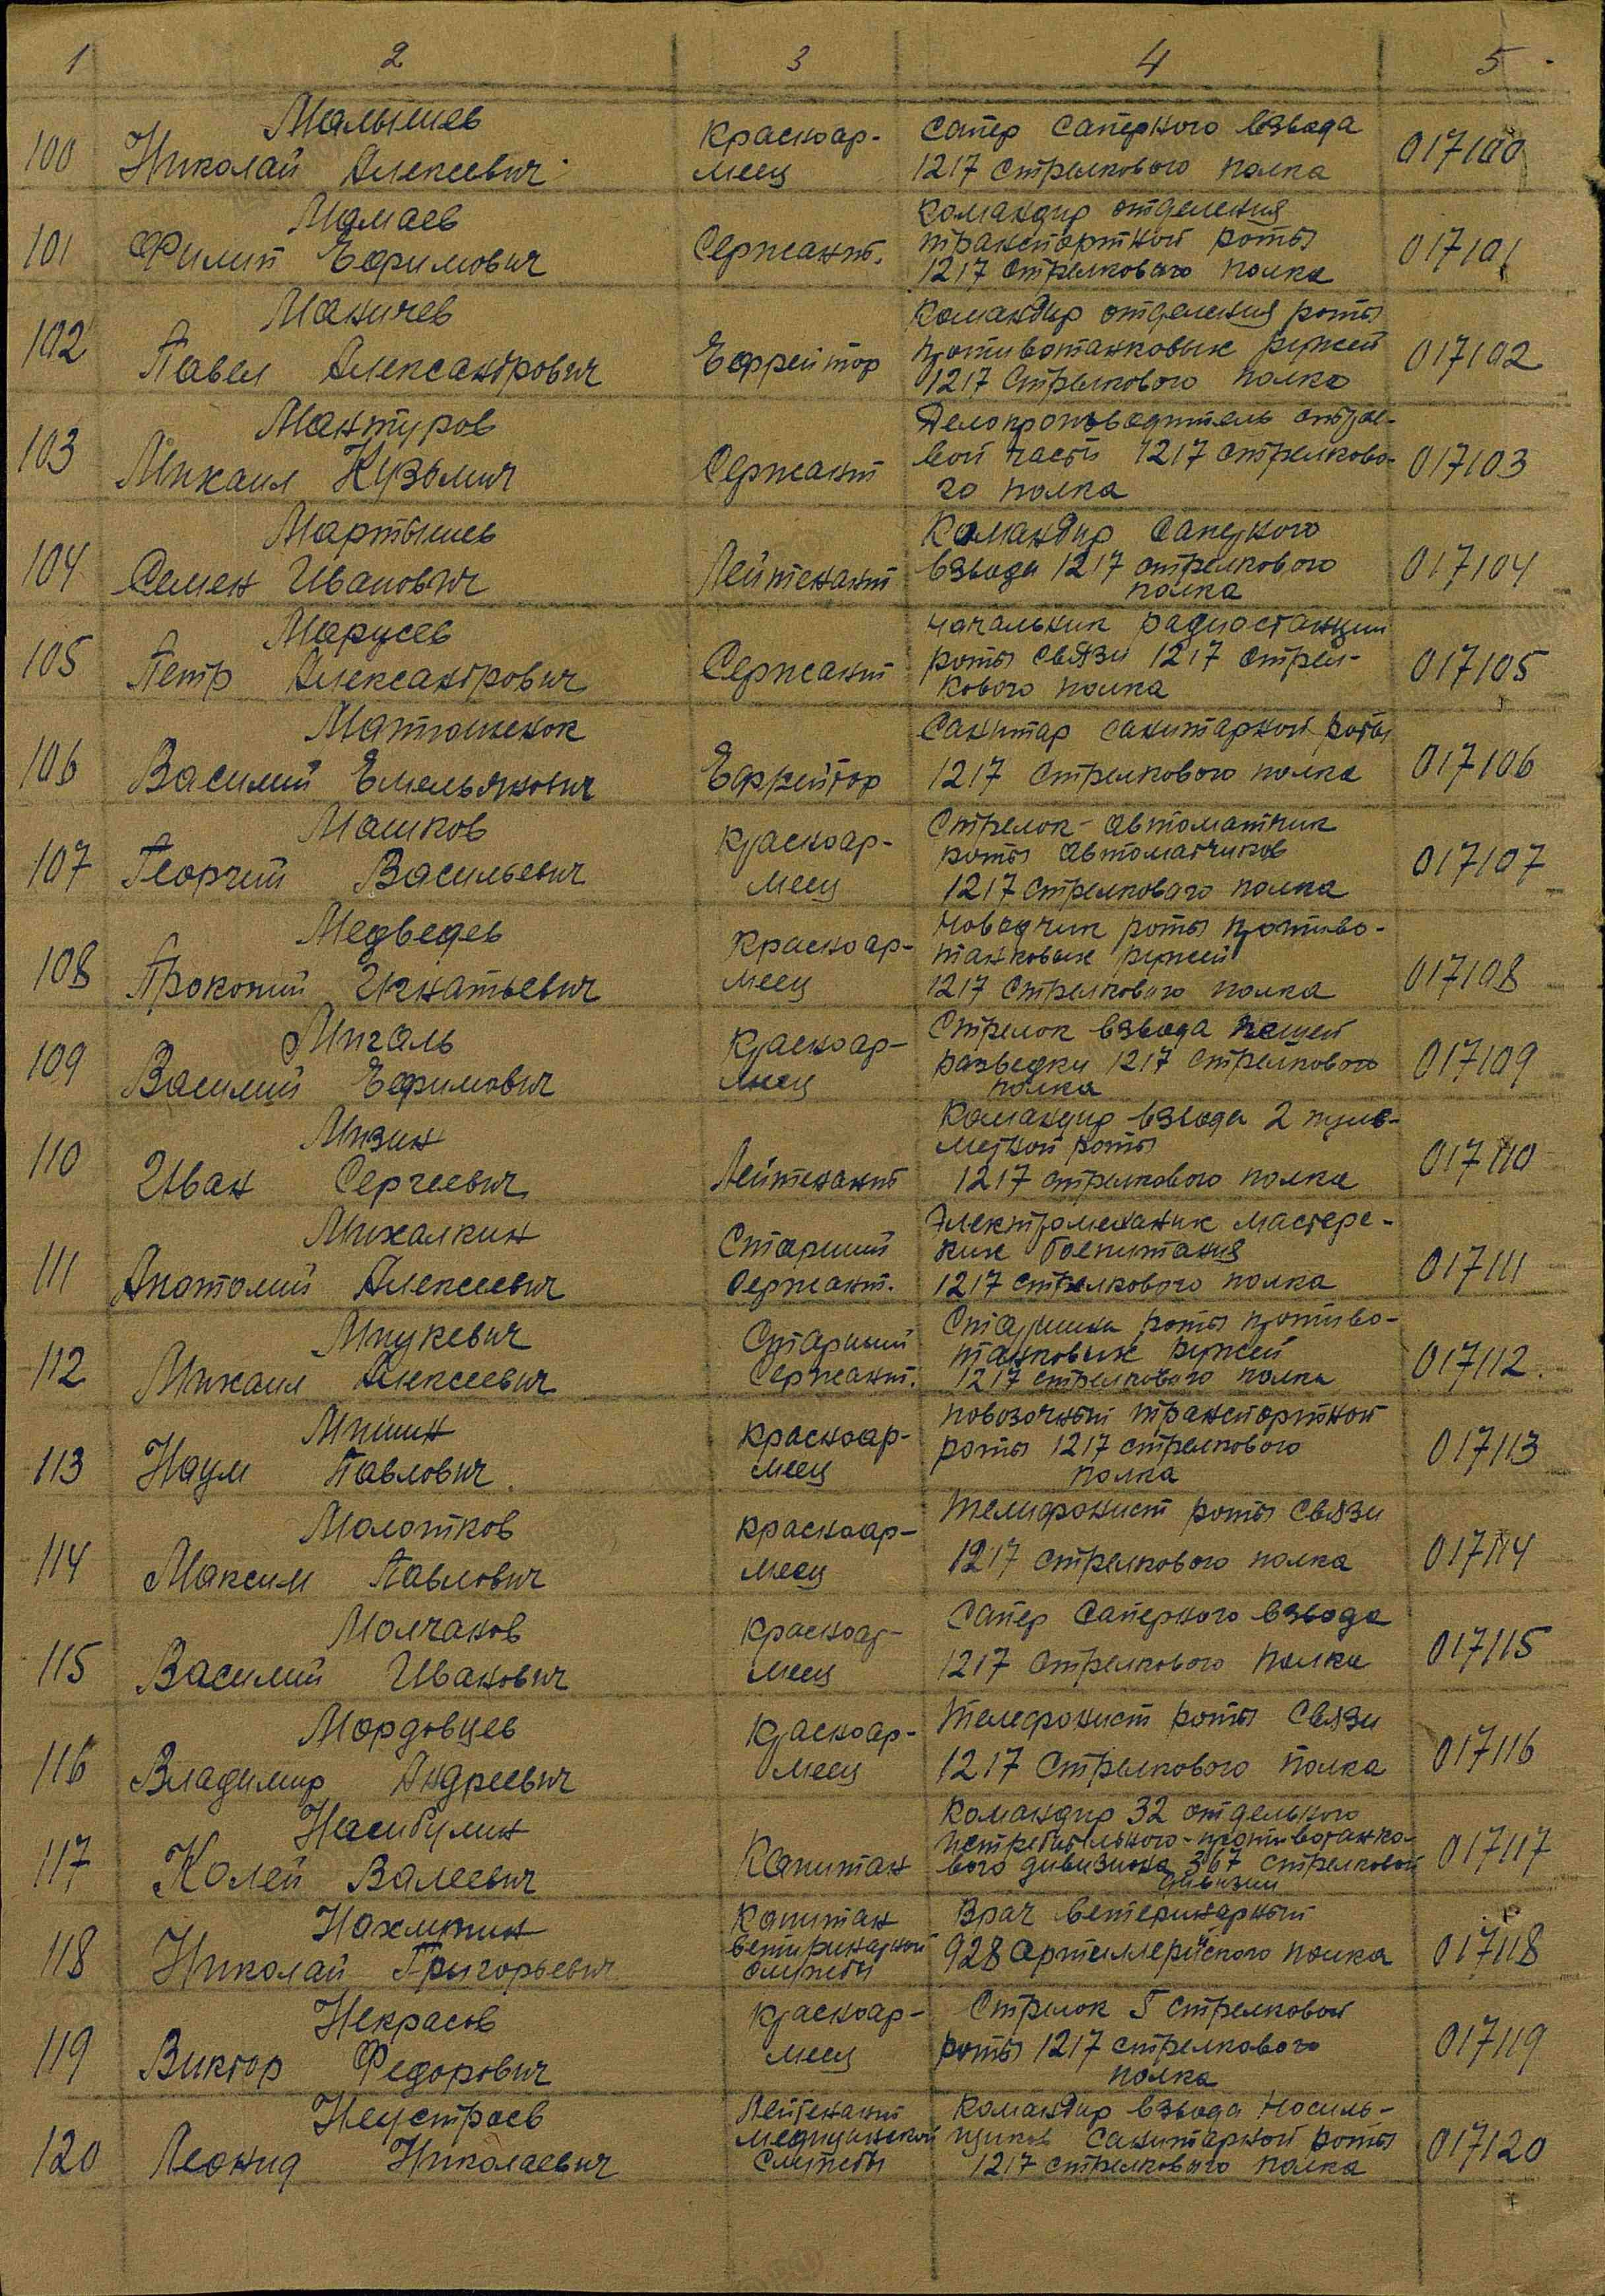 1 2 3 4 5
Малышев
100 Николай Алексеевич
Красноар-
меец
Сапер саперного взвода
1217 стрелкового полка
017100
Мамаев
101 Филип Ефимович
Сержант.
Командир отделения
транспортной роты
1217 стрелкового полка
017101
Маничев
102 Павел Александрович
Ефрейтор
Командир отделения роты
противотанковых ружей
1217 стрелкового полка
017102
Мантуров
103 Михаил Кузьмич
Сержант
Делопроизводитель строе-
вой части 1217 стрелково-
го полка
017103
Мартышев
104 Семен Иванович
Лейтенант
Командир саперного
взвода 1217 стрелкового
полка
017104
Марусев
105 Петр Александрович
Сержант
Начальник радиостанции
роты связи 1217 стрел-
кового полка
017105
Матюшенок
106 Василий Емельянович
Ефрейтор
Санитар санитарной роты
1217 стрелкового полка
017106
Машков
107 Георгий Васильевич
Красноар-
меец
Стрелок-автоматчик
роты автоматчиков
1217 стрелкового полка
017107
Медведев
108 Прокопий Игнатьевич
Красноар-
меец
Наводчик роты противо-
танковых ружей
1217 стрелкового полка
017108
Мигаль
109 Василий Ефимович
Красноар-
меец
Стрелок взвода пешей
разведки 1217 стрелкового
полка
017109
Мизин
110 Иван Сергеевич
Лейтенант
Командир взвода 2 пуле-
метной роты
1217 стрелкового полка
017110
Михалкин
111 Анатолий Алексеевич
Старший
сержант.
Электромеханик мастерс-
ких боепитания
1217 стрелкового полка
017111
Мицкевич
112 Михаил Алексеевич
Старший
Сержант.
Старшина роты противо-
танковых ружей
1217 стрелкового полка
017112.
Мишин
113 Наум Павлович.
Красноар-
меец
Повозочный транспортной
роты 1217 стрелкового
полка
017113
Молотков
114 Максим Павлович
Красноар-
меец
Телифонист роты связи
1217 стрелкового полка
017114
Молчанов
115 Василий Иванович
Красноар-
меец
Сапер саперного взвода
1217 стрелкового полка
017115
Мордовцев
116 Владимир Андреевич
Красноар-
меец
Телефонист роты связи
1217 стрелкового полка
017116
Насибулин
117 Калей Валеевич
Капитан
Командир 32 отдельного
истребительного-противотанко-
вого дивизиона 367 стрелковой
дивизии
017117
Нахмткин
118 Николай Григорьевич
Капитан
ветеринарной
службы
Врач ветеринарный
928 Артиллерийского полка
017118
Некрасов
119 Виктор Федорович
Красноар-
меец
Стрелок 5 стрелковой
роты 1217 стрелкового
полка
017119
Неустроев
120 Леонид Николаевич
Лейтенант
медицинской
службы
Командир взвода носиль-
щиков санитарной роты
1217 стрелкового полка
017120